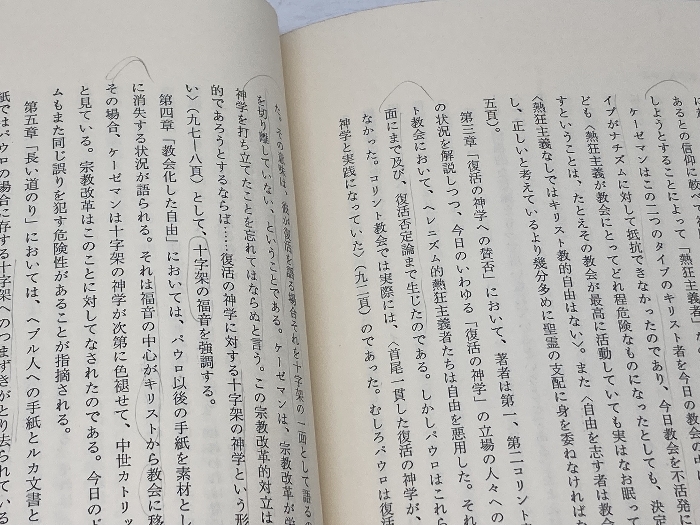 あるとの信仰に較べて
しようとすることによって「熱狂主義者」
ケーゼマンはこの二つのタイプのキリスト者を今日の教会の
イプがナチズムに対して抵抗できなかったのであり、今日教会を不活発に
ども〈熱狂主義が教会にとってどれ程危険なものになったとしても、決定
すということは、たとえその教会が最高に活動していても実はなお眠って
〈熱狂主義なしではキリスト教的自由はない〉。また〈自由を志す者は教
し、正しいと考えているより幾分多めに聖霊の支配に身を委ねなければな
五頁）。
第三章「復活の神学への賛否」において、著者は第一、第二コリント
の状況を解説しつつ、今日のいわゆる「復活の神学」の立場の人々への
ト教会において、ヘレニズム的熱狂主義者たちは自由を悪用した。それ
面にまで及び、復活否定論まで生じたのである。しかしパウロはこれら
なかった。コリント教会では実際には、〈首尾一貫した復活の神学が、
神学と実践になっていた〉（九二頁）のであった。むしろパウロは復活
た。その意味は、彼が復活を語る場合それを十字架の一面として語るの
を切り離していない、ということである。ケーゼマンは、宗教改革が栄
神学を打ち立てたことを忘れてはならぬと言う。この宗教改革的対立は
的であろうとするならば……復活の神学に対する十字架の神学という形
い〉（九七―八頁）として、十字架の福音を強調する。
第四章「教会化した自由」においては、パウロ以後の手紙を素材とし
に消失する状況が語られる。それは福音の中心がキリストから教会に移
その場合、ケーゼマンは十字架の神学が次第に色褪せて、中世カトリッ
と見ている。宗教改革はこのことに対してなされたのである。今日の
ムもまた同じ誤りを犯す危険性があることが指摘される。
第五章「長い道のり」においては、ヘブル人への手紙とルカ文書と
紙ではパウロの場合に存する十字架へのつまずきがとり去られている